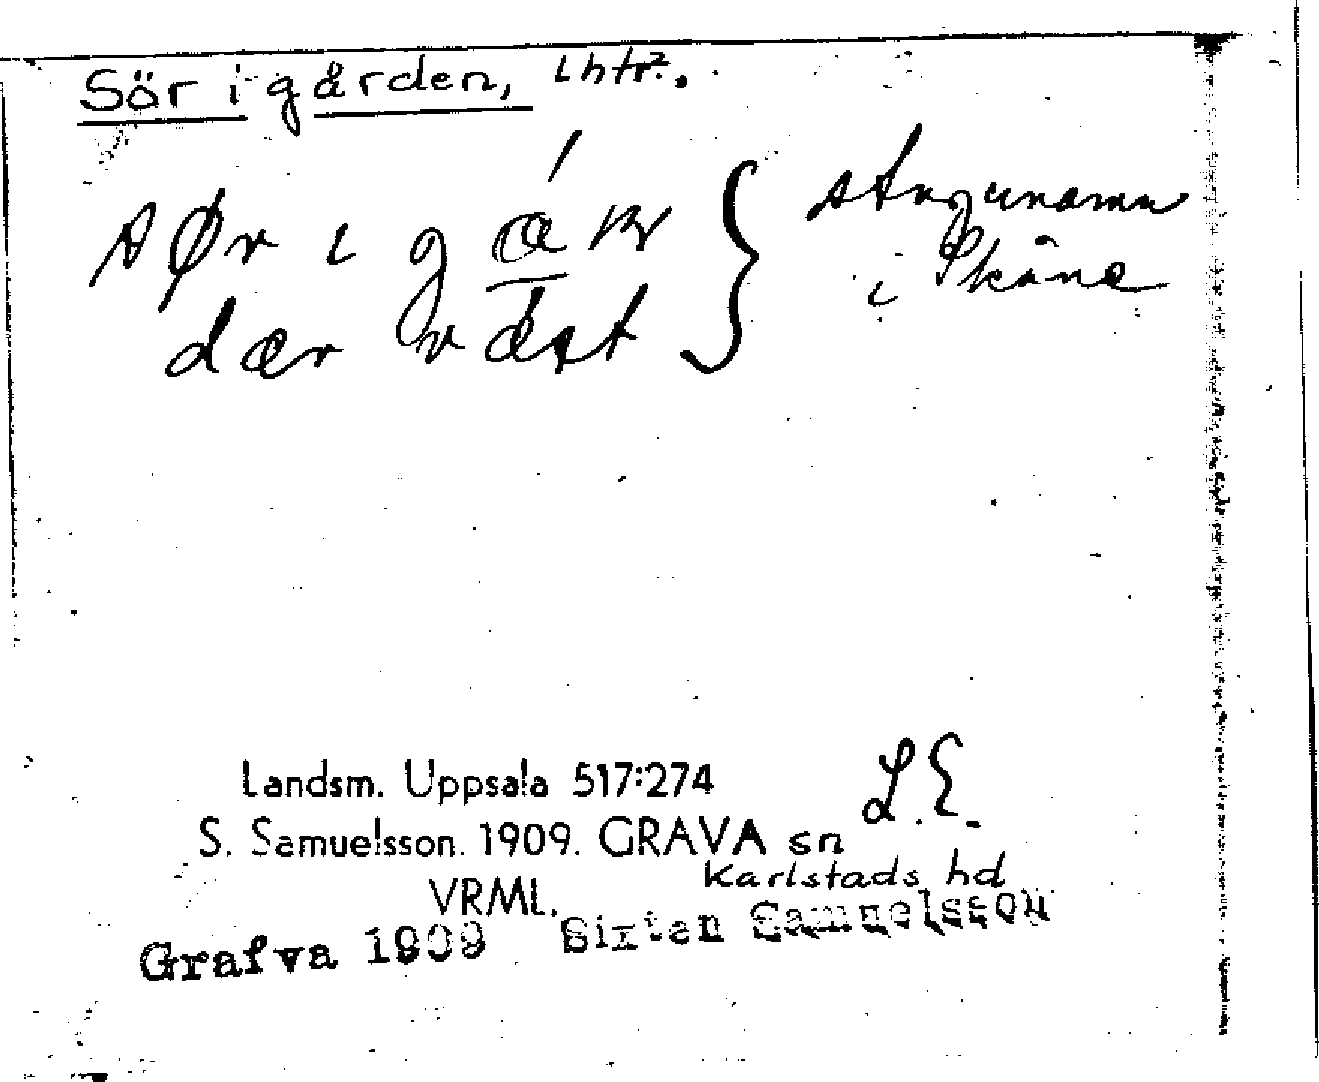 Sör i gården, 
sør i gɑ́ɳ } stugunamn
dær væst i Skåne
Landsm. Uppsala 517:274 L.E.
S. Samuelsson. 1909. GRAVA sn
Karlstads hd
VRML.
Grafva 1909 Sixten Samuelsson